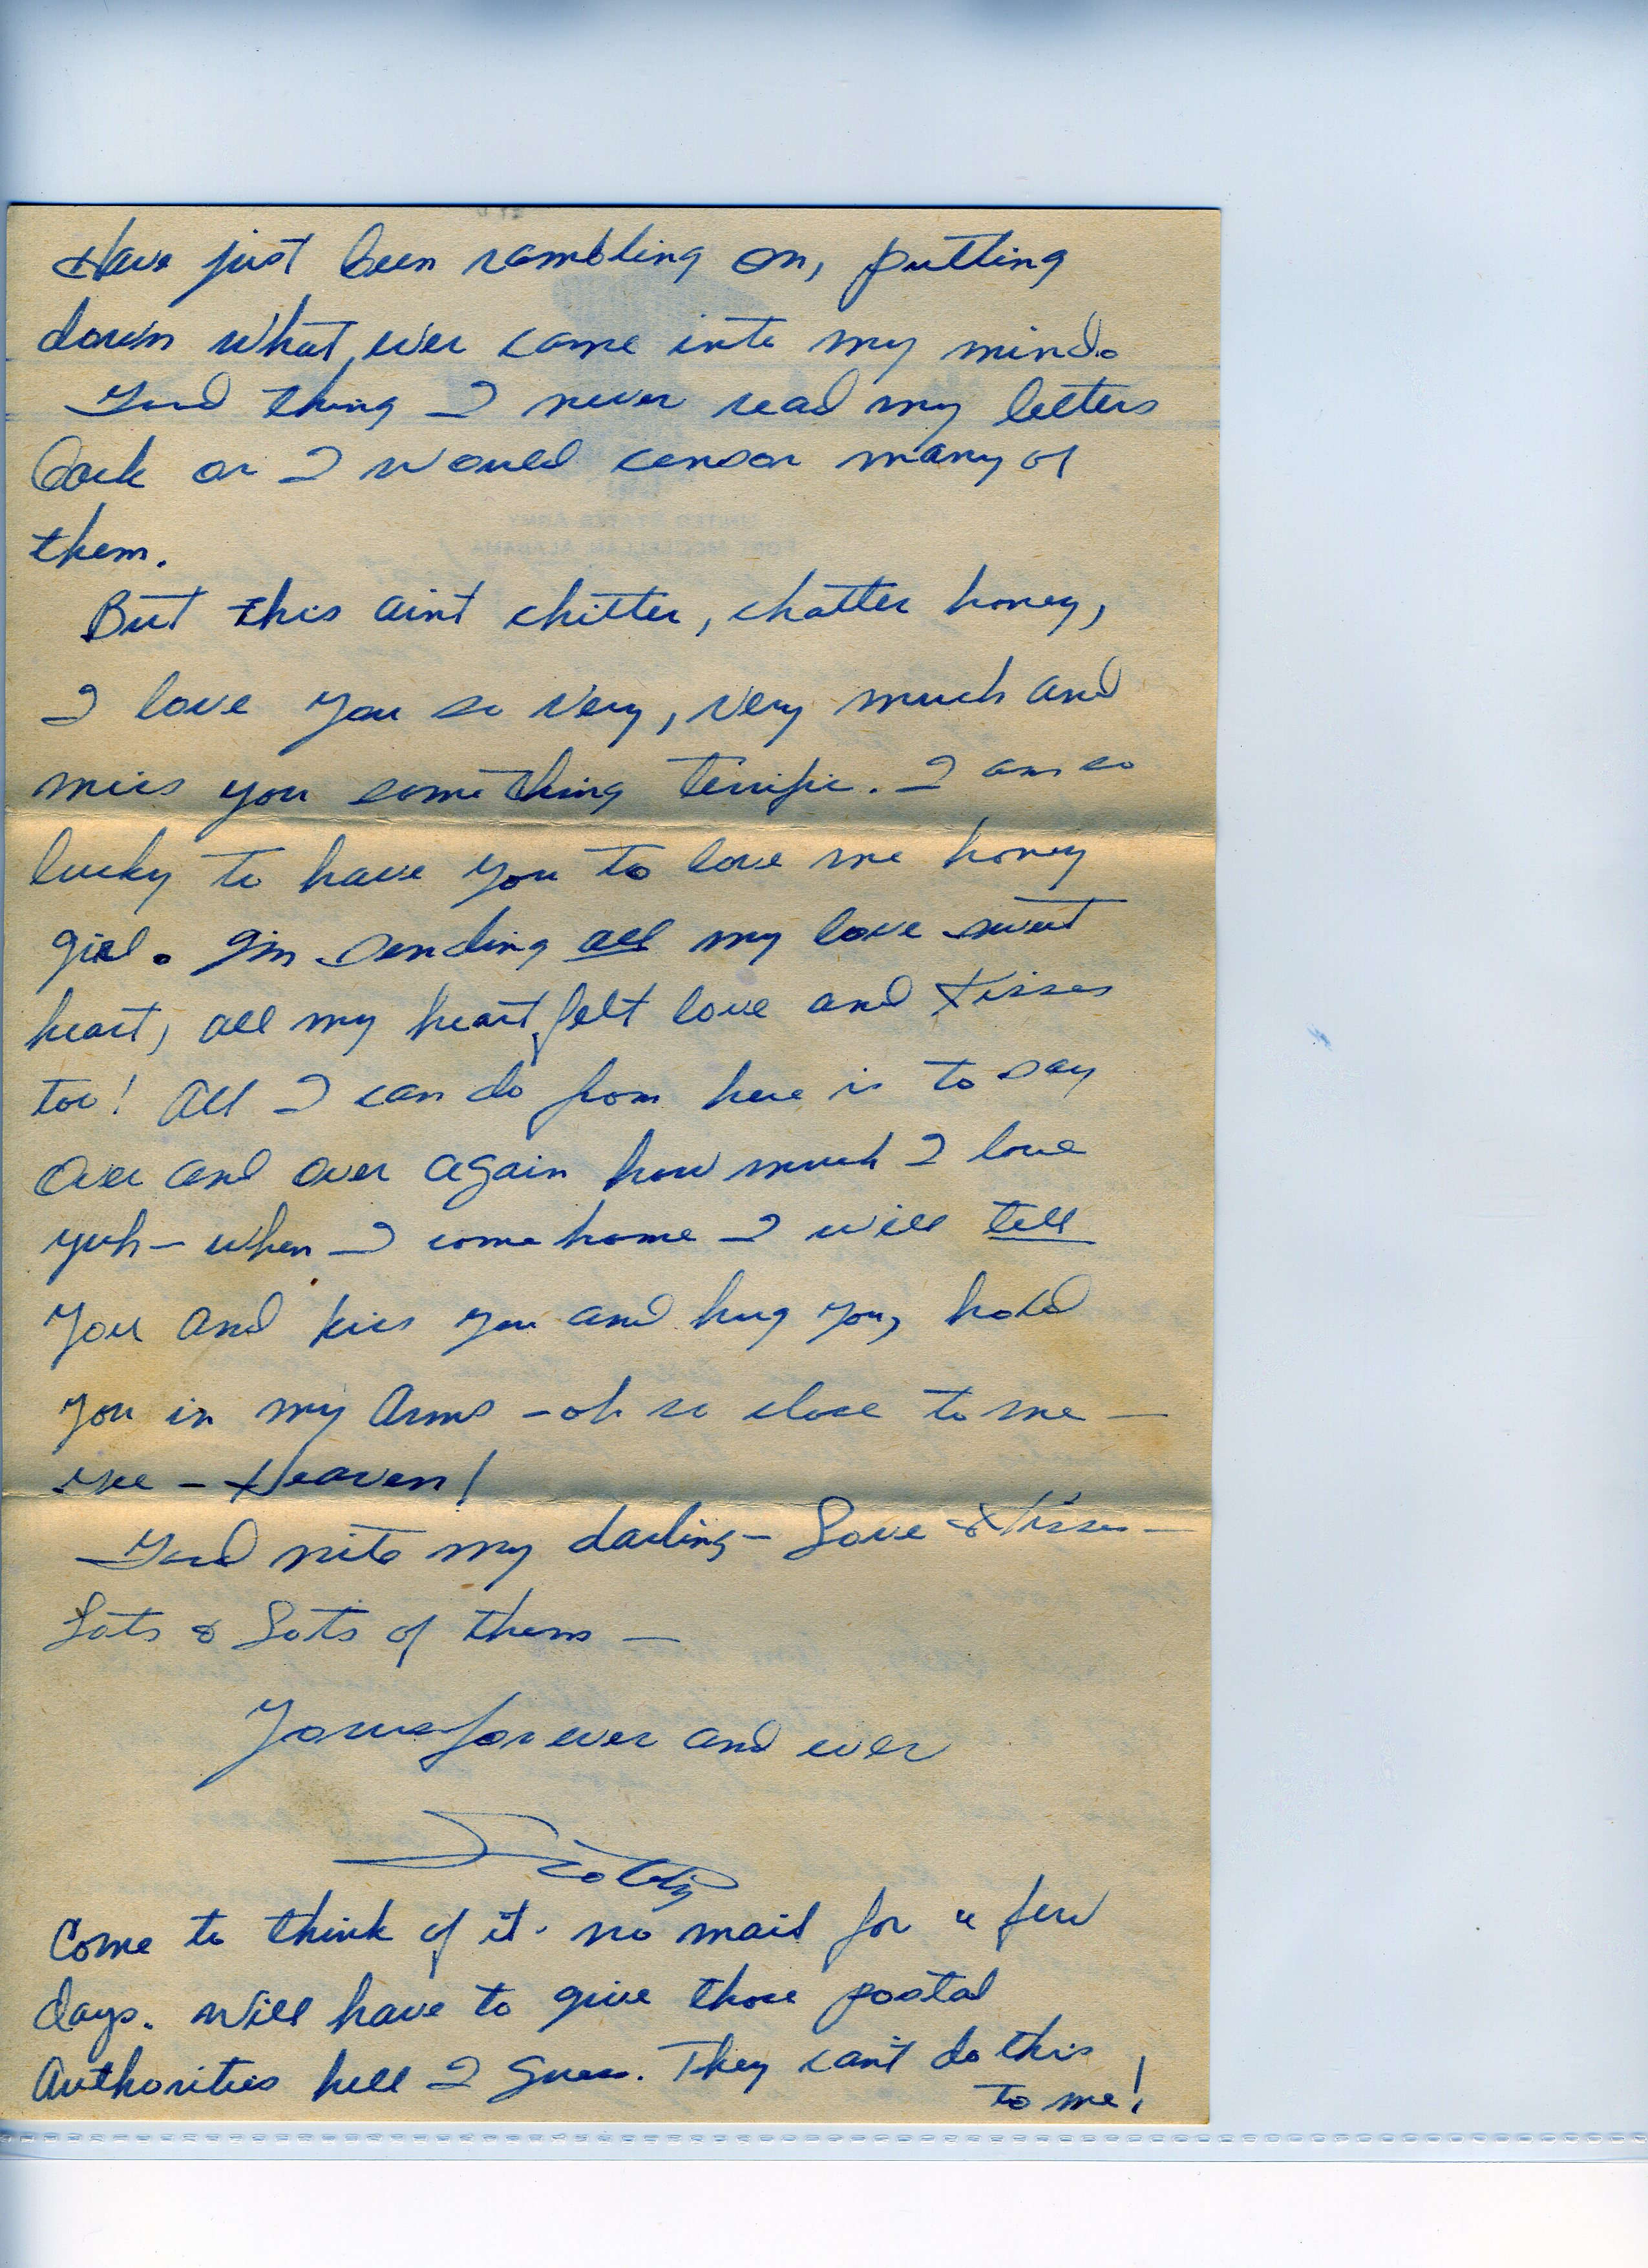 Have just been rambling on, putting
down what ever came into my mind.
Good thing I never read my letters
back or I would censor many of
them.
But this aint chitter, chatter honey,
I love you so very, very much and
miss you something terrific. I am so
lucky to have you to love me honey
girl. I'm sending all my love sweet
heart, all my heart felt love and Kisses
too! All I can do from here is to say
over and over again how much I love
yuh - when I come home I will tell
you and kiss you and hug you, hold
you in my Arms - oh so close to me -
- Heaven!
Good nite my darling - Love & Kisses -
Lots & Lots of them -
Yours forever and ever
Scotty
Come to think of it. no mail for a few
days. Will have to give those postal
Authorities hell I guess. They can't do this
to me!
UNITED STATES ARMY
FORT MCCLELLAN, ALABAMA